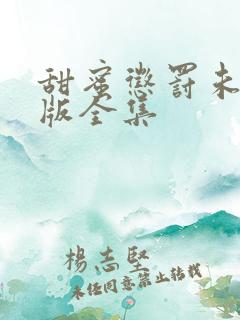 甜蜜惩罚未
版全集
杨志坚
未经同意禁止转载